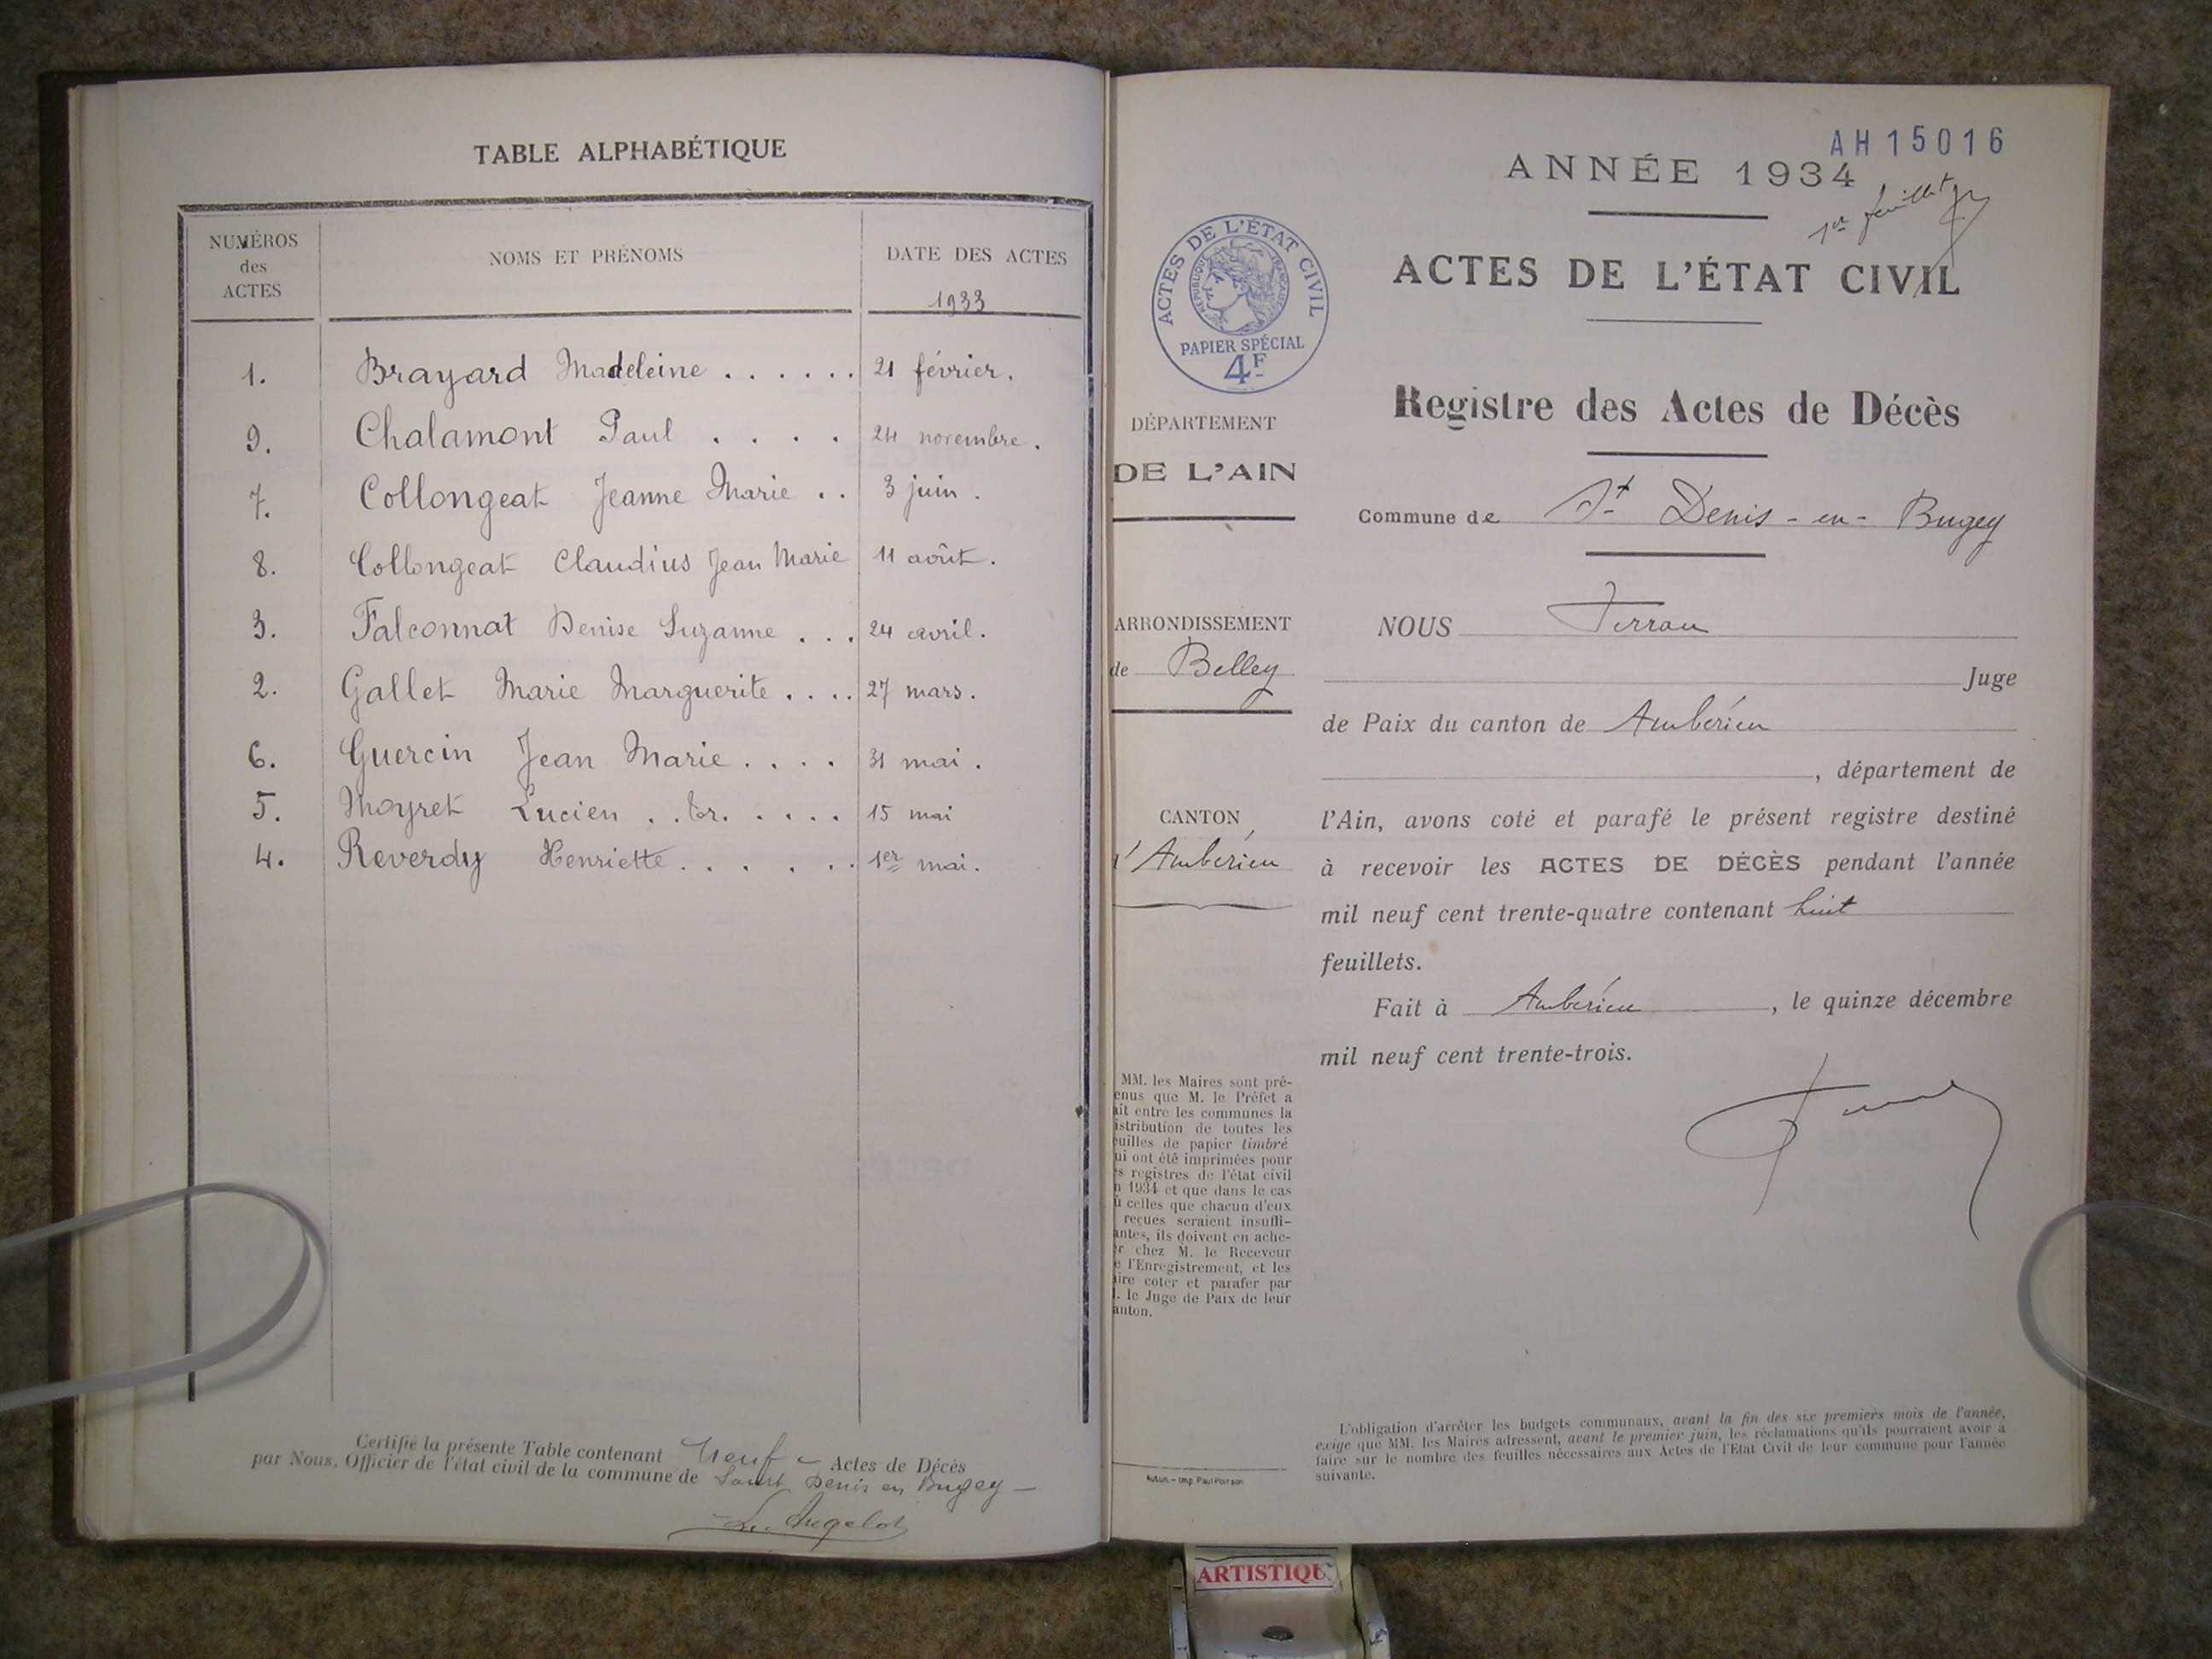 TABLE ALPHABÉTIQUE
NUMÉROS des ACTES | NOMS ET PRÉNOMS | DATE DES ACTES 1933
1. Brayard Madeleine . . . . . . 21 février.
9. Chalamont Paul . . . . 24 novembre.
7. Collongeat Jeanne Marie . . 3 juin.
8. Collongeat Claudius Jean Marie 11 août.
3. Falconnat Denise Suzanne . . . 24 avril.
2. Gallet Marie Marguerite . . . . 27 mars.
6. Guercin Jean Marie . . . . 31 mai.
5. Moyret Lucien . . . . . . 15 mai
4. Reverdy Henriette . . . . . . 1er mai.
Certifié la présente Table contenant Neuf Actes de Décès
par Nous, Officier de l'état civil de la commune de Saint Denis en Bugey
L. Angelot
AH15016
ANNÉE 1934
1er feuillet
ACTES DE L'ÉTAT CIVIL
ACTES DE L'ÉTAT CIVIL
RÉPUBLIQUE FRANÇAISE
PAPIER SPÉCIAL
4F
Registre des Actes de Décès
Commune de St Denis-en-Bugey
DÉPARTEMENT
DE L'AIN
ARRONDISSEMENT
de Belley
CANTON
d'Ambérieu
NOUS Ferrau
Juge
de Paix du canton de Ambérieu
, département de
l'Ain, avons coté et parafé le présent registre destiné
à recevoir les ACTES DE DÉCÈS pendant l'année
mil neuf cent trente-quatre contenant huit
feuillets.
Fait à Ambérieu, le quinze décembre
mil neuf cent trente-trois.
MM. les Maires sont pré-
enus que M. le Préfet a
ait entre les communes la
istribution de toutes les
euilles de papier timbré
ui ont été imprimées pour
es registres de l'état civil
n 1934 et que dans le cas
ù celles que chacun d'eux
reçues seraient insuffi-
antes, ils doivent en ache-
r chez M. le Receveur
e l'Enregistrement, et les
aire coter et parafer par
. le Juge de Paix de leur
anton.
Autun. - Imp. Paul Poirson
L'obligation d'arrêter les budgets communaux, avant la fin des six premiers mois de l'année,
exige que MM. les Maires adressent, avant le premier juin, les réclamations qu'ils pourraient avoir à
faire sur le nombre des feuilles nécessaires aux Actes de l'Etat Civil de leur commune pour l'année
suivante.
ARTISTIQU